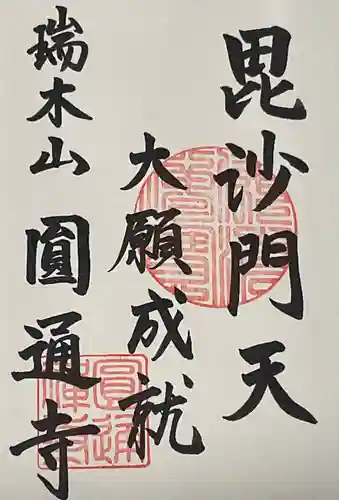 毘沙門天
大願成就
瑞木山
圓通寺